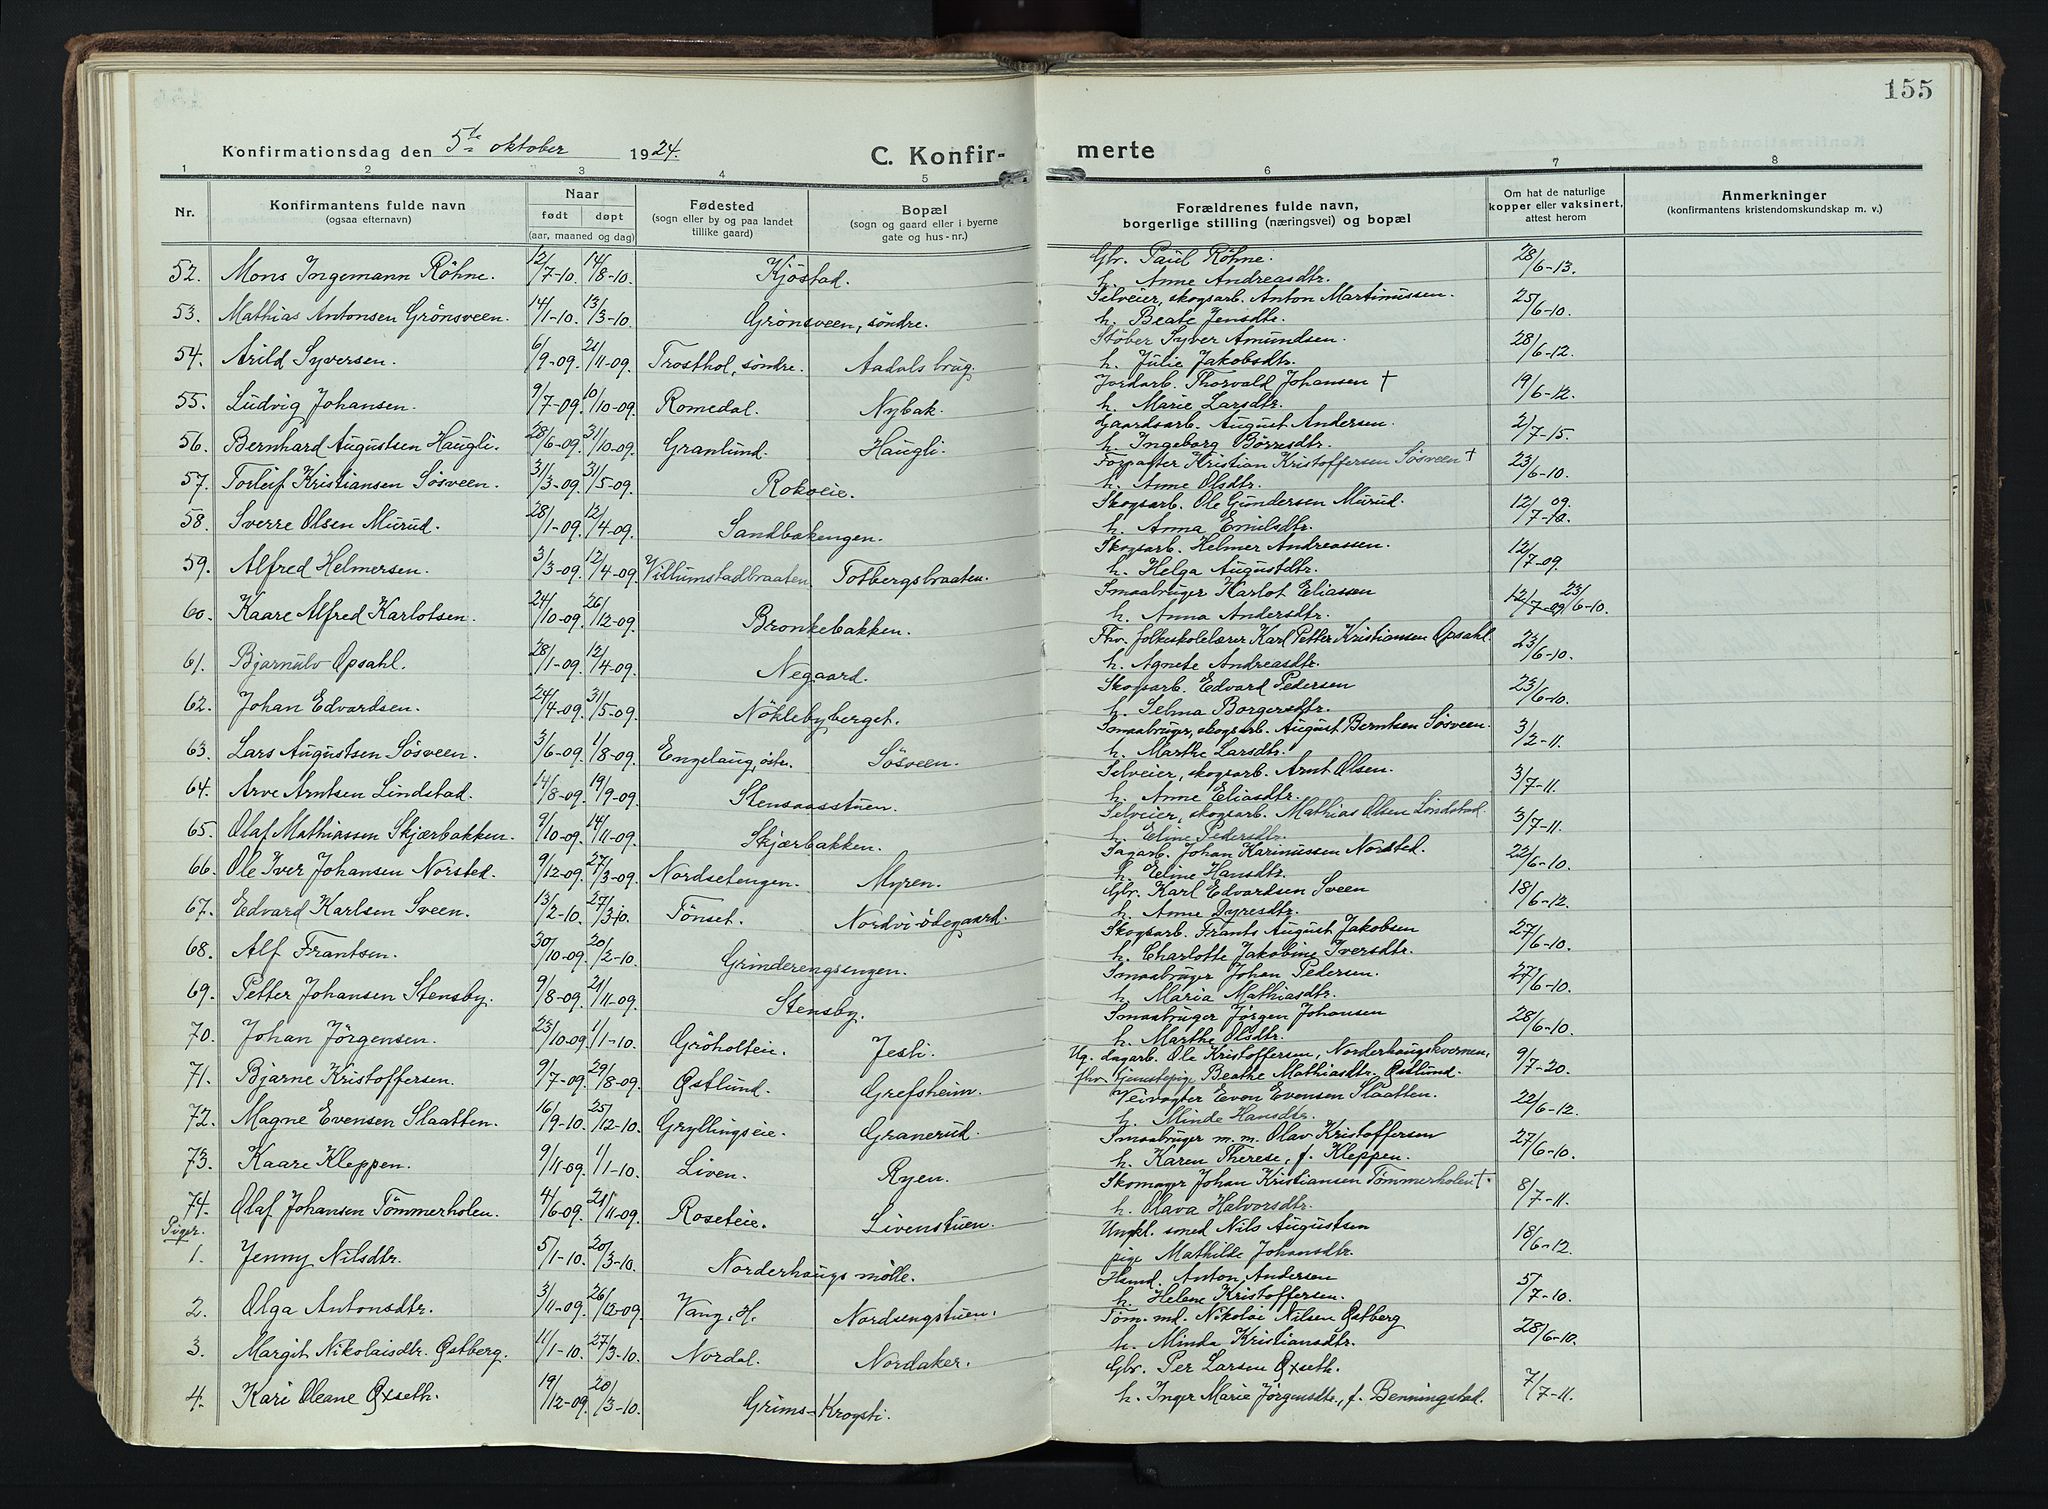 155
Konfirmationsdag den 5te oktober 1924.
C. Konfirmerte
1 2 3 4 5 6 7 8
Nr. | Konfirmantens fulde navn (ogsaa efternavn) | Naar født døpt (aar, maaned og dag) | Fødested (sogn eller by og paa landet tillike gaard) | Bopæl (sogn og gaard eller i byerne gate og hus-nr.) | Forældrenes fulde navn, borgerlige stilling (næringsvei) og bopæl | Om hat de naturlige kopper eller vaksinert, attest herom | Anmerkninger (konfirmantens kristendomskundskap m. v.)
52. Mons Ingemann Röhne. 12/7-10. 14/8-10. Kjöstad. Gbr. Paul Röhne. 28/6-13.
h. Anne Andreasdtr.
53. Mathias Antonsen Grönsveen. 14/1-10. 13/3-10. Grönsveen, söndre. Selveier, skogsarb. Anton Martinussen. 25/6-10.
h. Beate Jensdtr.
54. Arild Syversen. 6/9-09. 21/11-09. Trosthol, söndre. Aadals brug. Stöber Syver Amundsen. 28/6-12.
h. Julie Jakobsdtr.
55. Ludvig Johansen. 9/7-09. 10/10-09. Romedal. Nybak. Jordarb. Thorvald Johansen † 19/6-12.
h. Marie Larsdtr.
56. Bernhard Augustsen Haugli. 28/6-09. 31/10-09. Granlund. Haugli. Gaardsarb. August Andersen. 2/7-15.
h. Ingeborg Börresdtr.
57. Torleif Kristiansen Sösveen. 31/3-09. 31/5-09. Rokoeie. Forpagter Kristian Kristoffersen Sösveen † 23/6-10.
h. Anne Olsdtr.
58. Sverre Olsen Murud. 28/1-09. 12/4-09. Sandbakengen. Skogsarb. Ole Gundersen Murud. 12/7-09.
h. Anna Emilsdtr.
59. Alfred Helmersen. 3/3-09. 12/4-09. Villumstadbraaten Totbergsbraaten. Skogsarb. Helmer Andreassen. 12/7-09.
h. Helga Augustdtr.
60. Kaare Alfred Karlotsen. 24/10-09. 26/12-09. Bronkebakken. Smaabruger Karlot Eliassen 12/7-09 23/6-10.
h. Anna Andersdtr.
61. Bjarnulv Opsahl. 28/1-09. 12/4-09. Negaard. Fhv. folkeskolelærer Karl Petter Kristiansen Opsahl 23/6-10.
h. Agnete Andreasdtr.
62. Johan Edvardsen. 24/4-09. 31/5-09. Nöklebyberget. Skogsarb. Edvard Pedersen 23/6-10.
h. Selma Borgersdtr.
63. Lars Augustsen Sösveen. 3/6-09. 1/8-09. Engelaug, östr. Sösveen. Smaabruger, skogsarb. August Berntsen Sösveen. 3/2-11.
h. Marthe Larsdtr.
64. Arve Arntsen Lindstad. 14/8-09. 19/9-09. Stensaasstuen. Selveier, skogsarb. Arnt Olsen. 3/7-11.
h. Anne Eliasdtr.
65. Olaf Mathiassen Skjærbakken. 9/10-09. 14/11-09. Skjærbakken. Selveier, skogsarb. Mathias Olsen Lindstad. 3/7-11.
h. Eline Pedersdtr.
66. Ole Iver Johansen Norsted. 9/12-09. 27/3-09. Nordsetengen. Myren. Sagarb. Johan Karinussen Norsted. 22/6-10.
h. Eline Hansdtr.
67. Edvard Karlsen Sveen. 13/2-10. 27/3-10. Tönset. Nordvi-ödegaard. Gbr. Karl Edvardsen Sveen 18/6-12.
h. Anne Dyresdtr.
68. Alf Frantsen. 30/10-09. 20/2-10. Grinderengsengen. Skogsarb. Frants August Jakobsen 27/6-10.
h. Charlotte Jakobine Iversdtr.
69. Petter Johansen Stensby. 9/8-09. 21/11-09. Stensby. Smaabruger Johan Pedersen. 27/6-10.
h. Maria Mathiasdtr.
70. Johan Jörgensen. 23/10-09. 1/1-10. Gröholteie. Jesti. Smaabruger Jörgen Johansen 28/6-10.
h. Marthe Olsdtr.
71. Bjarne Kristoffersen. 9/7-09. 29/8-09. Østlund. Grefsheim. Ug. dagarb. Ole Kristoffersen, Norderhaugskvernen, 9/7-20.
fhv. tjenestepige Beathe Mathiasdtr. Østlund.
72. Magne Evensen Slaatten. 16/9-10. 25/12-10. Gryllingseie. Granerud. Veivogter Even Evensen Slaatten. 22/6-12.
h. Minde Hansdtr.
73. Kaare Kleppen. 9/11-09. 1/1-10. Liven. Ryen. Smaabruger m. m. Olav Kristoffersen 27/6-10.
h. Karen Therese, f. Kleppen.
74. Olaf Johansen Tömmerholen. 4/6-09. 21/11-09. Roseteie. Livenstuen. Skomager Johan Kristiansen Tömmerholen †. 8/7-11.
h. Olava Halvorsdtr.
Piger.
1. Jenny Nilsdtr. 5/1-10. 20/3-10. Norderhaugs mölle. Ungkl. smed Nils Augustsen 18/6-12.
pige Mathilde Johansdtr.
2. Olga Antonsdtr. 3/11-09. 26/12-09. Vang, H. Nordsengstuen. Husmd. Anton Andersen 5/7-10.
h. Helene Kristoffersen.
3. Margit Nikolaisdtr. Østberg. 11/1-10. 27/3-10. Nordal. Nordaker. Töm.-md. Nikolai Nilsen Østberg 28/6-10.
h. Minda Kristiansdtr.
4. Kari Oleane Øxseth. 19/12-09. 20/3-10. Grims-Krogsti. Gbr. Per Larsen Øxseth. 7/7-11.
h. Inger Marie Jörgensdtr., f. Benningstad.